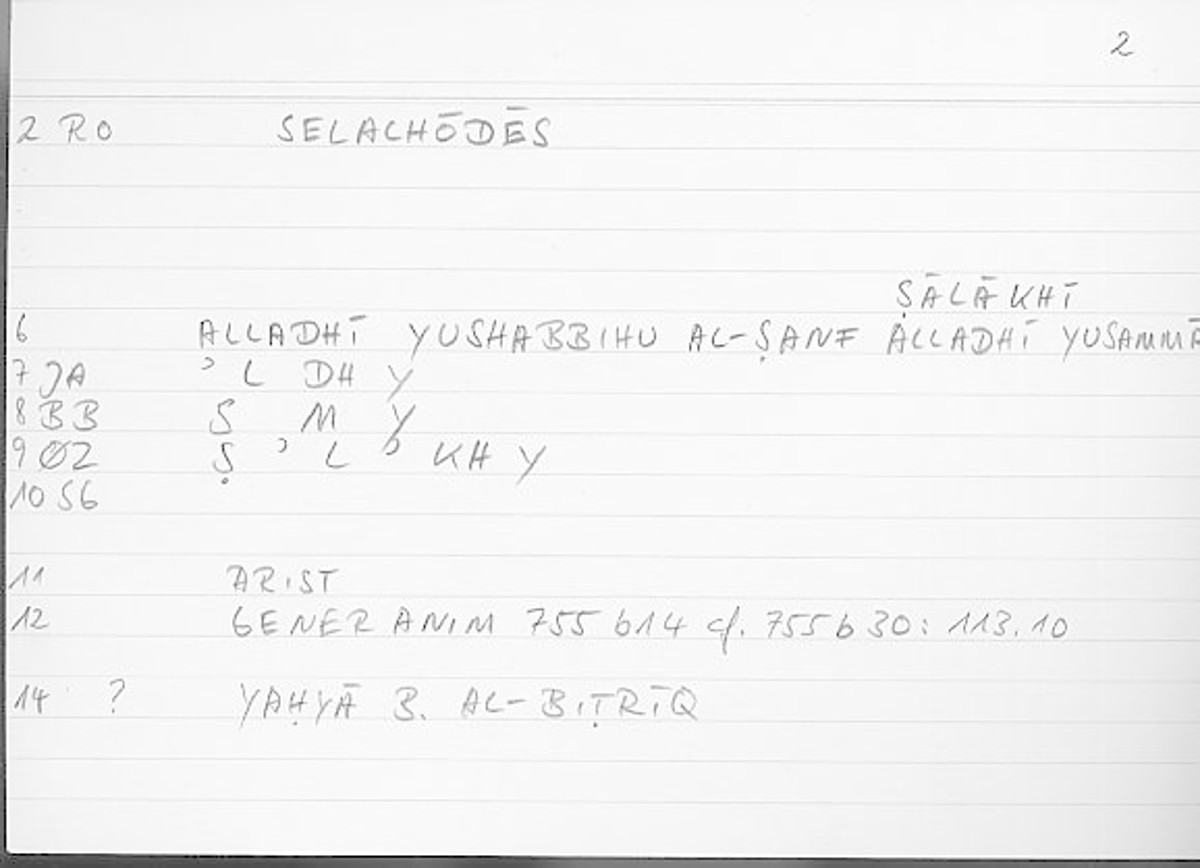 2
2 RO SELACHŌDĒS
ṢĀLĀKHĪ
6 ALLADHĪ YUSHABBIHU AL-ṢANF ALLADHĪ YUSAMMĀ
7 JA ʾ L DH Y
8 BB S M Y
9 ØZ Ṣ ʾ L ʾ KH Y
10 SG
11 ARIST
12 GENER ANIM 755 b14 cf. 755 b 30: 113.10
14 ? YAḤYĀ B. AL-BIṬRĪQ